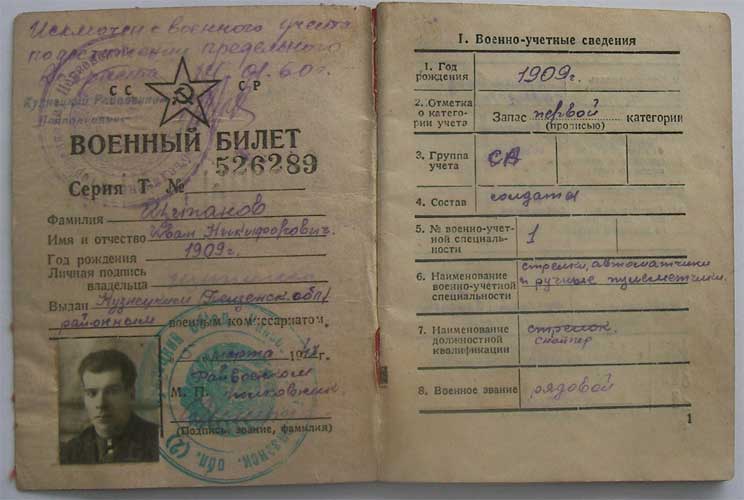 Исключен с военного учета
по достижении предельного
возраста 14.01.60г.
СС СР
ВОЕННЫЙ БИЛЕТ
526289
Серия Т №
Фамилия
Имя и отчество Иван Никифорович
Год рождения 1909г.
Личная подпись
владельца
Выдан Кузнецким Пензенск. обл
районным военным комиссариатом
марта
Райвоенком
М. П. полковник
(Подпись, звание, фамилия)
I. Военно-учетные сведения
1. Год
рождения 1909г.
2. Отметка
о катего-
рии учета Запас первой категории
(прописью)
3. Группа
учета СА
4. Состав солдаты
5. № военно-учет-
ной специаль-
ности 1
6. Наименование
военно-учетной
специальности
стрелки, автоматчики
и ручные пулеметчики.
7. Наименование
должностной
квалификации
стрелок.
снайпер
8. Военное звание рядовой
1